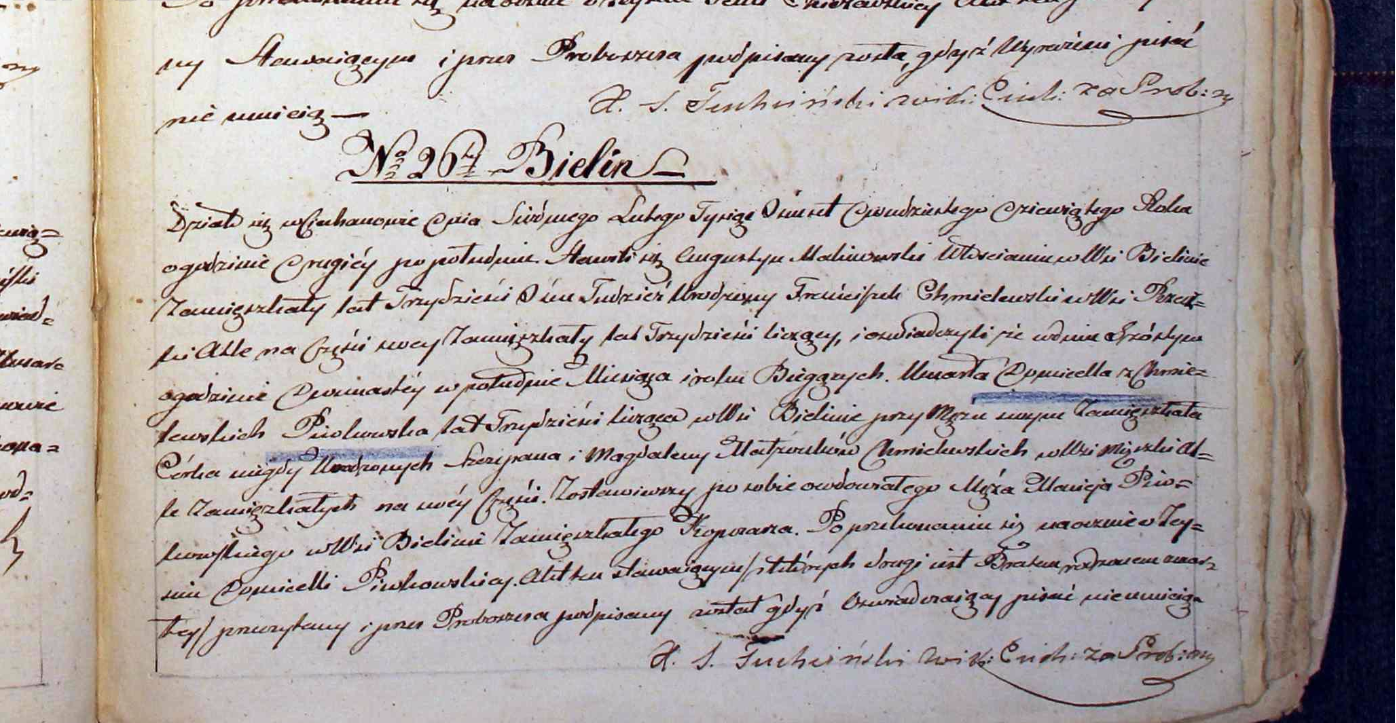 ny Stawaiącym i przez Proboszcza podpisany został, gdyż Wyrażeni pisać
nie umieią —
X. S. Tuchciński wik: Ciech: za Prob:
No 26 Bielin
Działo się w Ciechanowie dnia Siódmego Lutego Tysiąc Ośmset dwudziestego dziewiątego Roku
o godzinie drugiéy po południu. Stawili się Augustyn Malinowski Włościanin w Wsi Bielinie
Zamięszkały lat Trzydzieści Ośm Tudzież Urodzony Franciszek Chmielewski w Wsi
na Części swey Zamięszkały lat Trzydzieści liczący, i oświadczyli iż w dniu Szóstym
o godzinie dwunastéy w południe Miesiąca i roku Bieżących. Umarła Domicella z Chmie=
lewskich Piotrowska lat Trzydzieści licząca w Wsi Bielinie przy Mężu swym Zamięszkała
Córka niegdy Urodzonych Szczepana i Magdaleny Małżonków Chmielewskich w Wsi
Zamięszkałych na swéy Części. Zostawiwszy po sobie owdowiałego Męża Macieja Pio=
trowskiego w Wsi Bielinie Zamięszkałego. Po przekonaniu się naocznie o Zey=
ściu Domicelli Piotrowskiey Akt ten stawaiącym/: z których drugi iest Bratem rodzonem zmar=
łey/ przeczytany i przez Proboszcza podpisany został gdyż Oświadczaiący pisać nie umieią
X. S. Tuchciński wik: Ciech: za Prob: